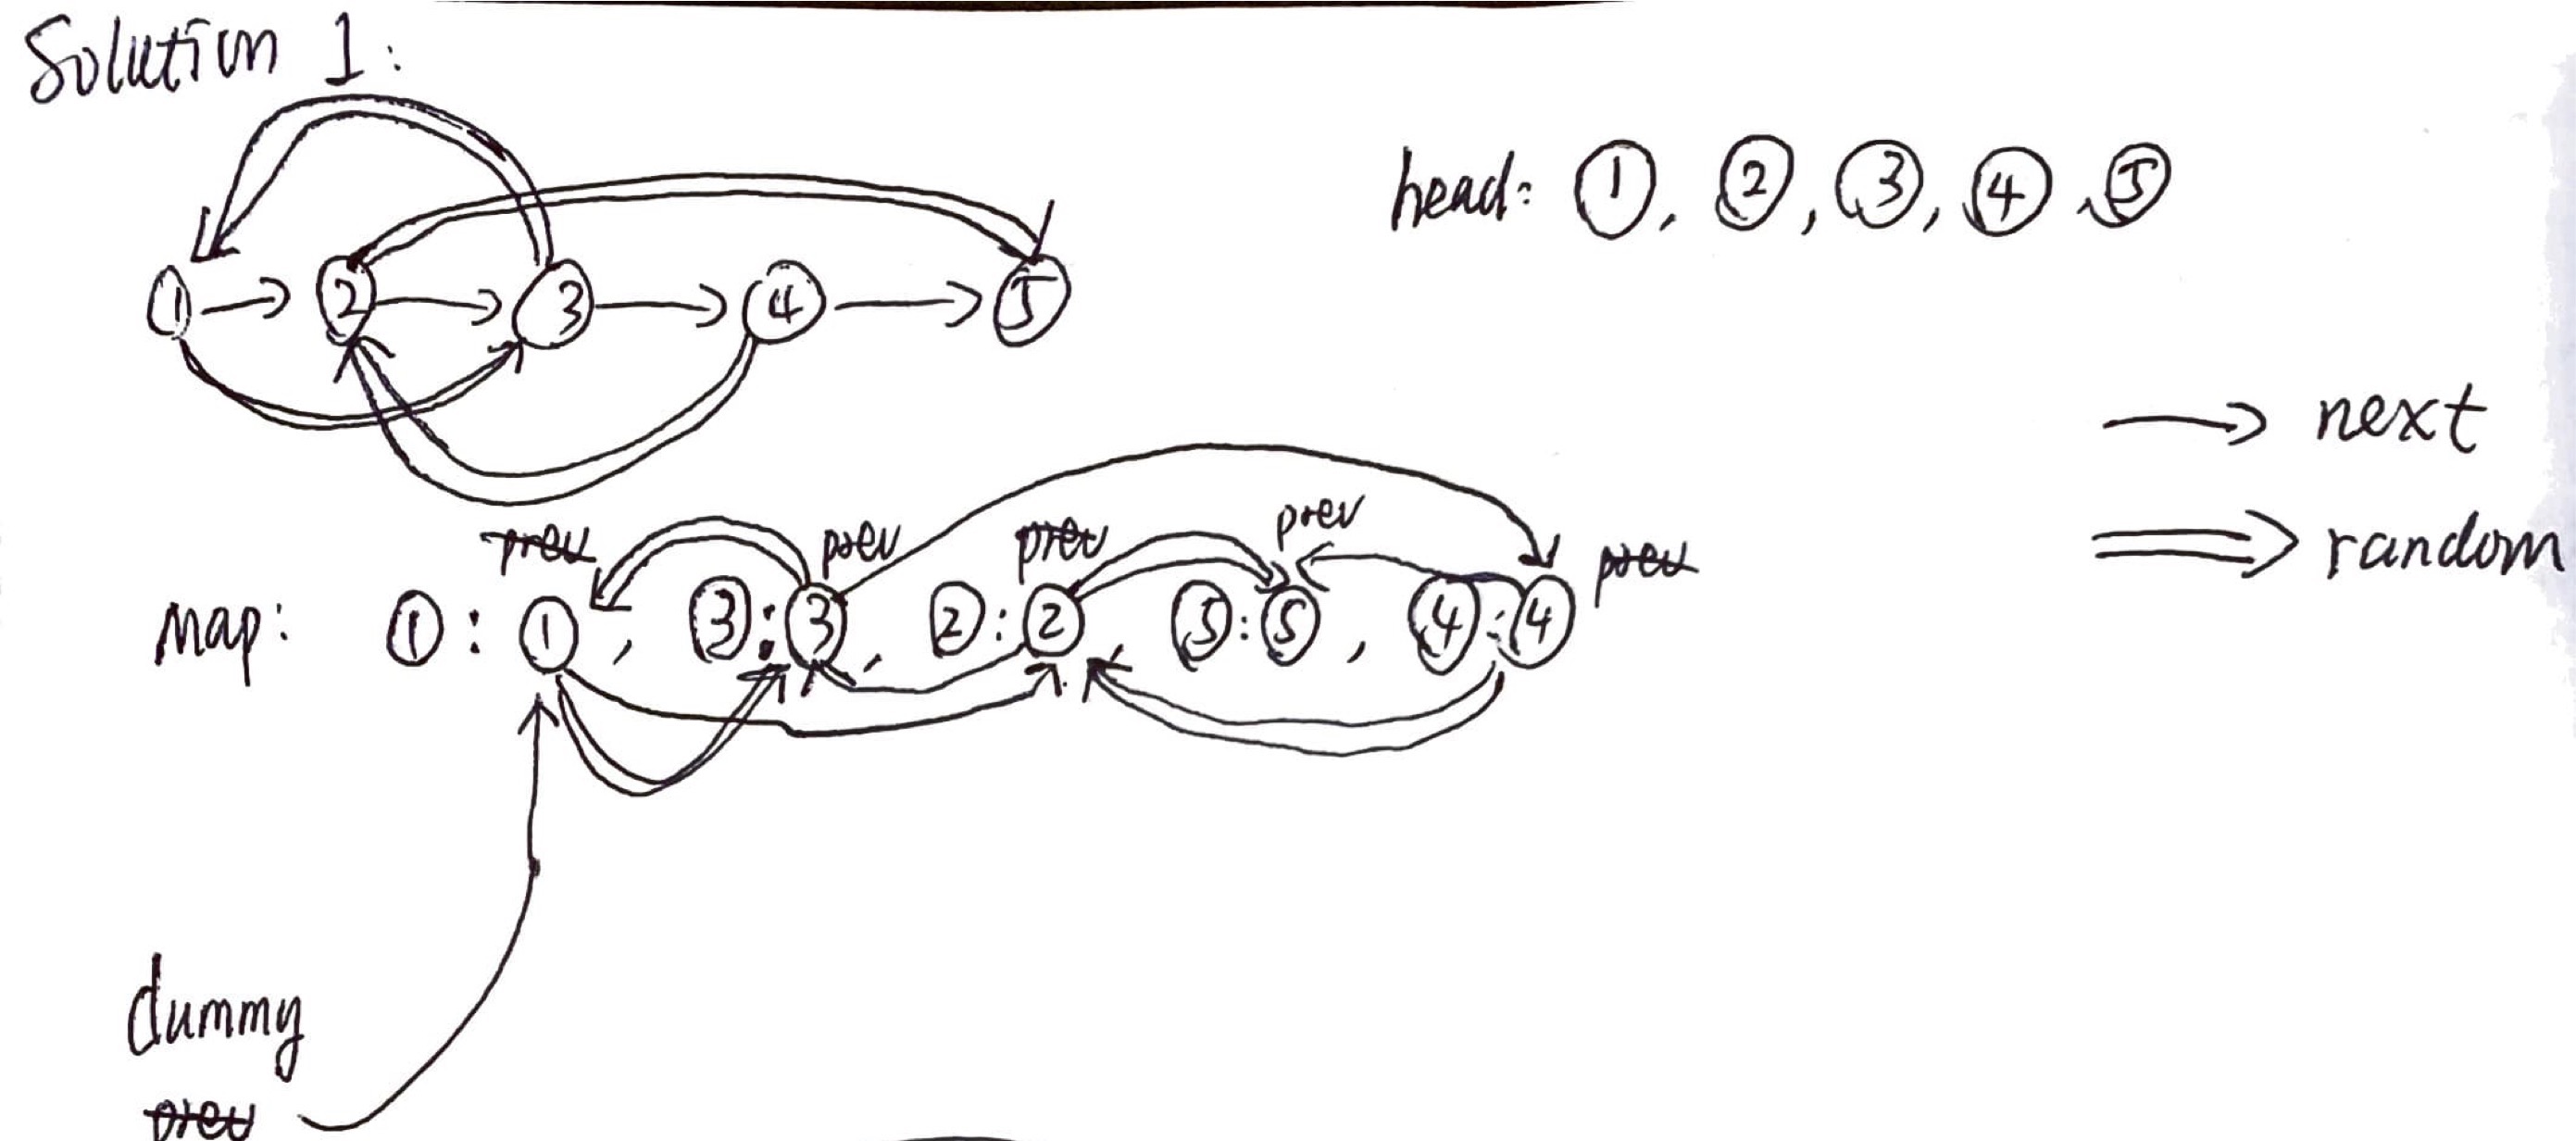 Solution 1:
head: ①, ②, ③, ④, ⑤
① → ② → ③ → ④ → ⑤
→ next
⇒ random
prev prev prev prev prev
map: ①:①, ③:③, ②:②, ⑤:⑤, ④:④
dummy
prev